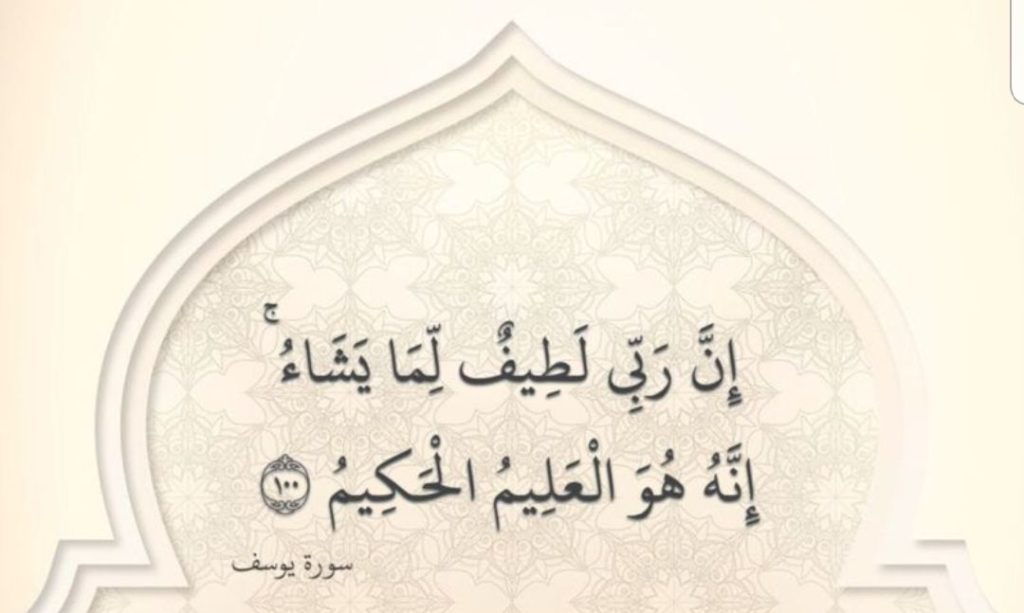 إِنَّ رَبِّي لَطِيفٌ لِّمَا يَشَاءُ ۚ
إِنَّهُ هُوَ الْعَلِيمُ الْحَكِيمُ ﴿١٠٠﴾
سورة يوسف